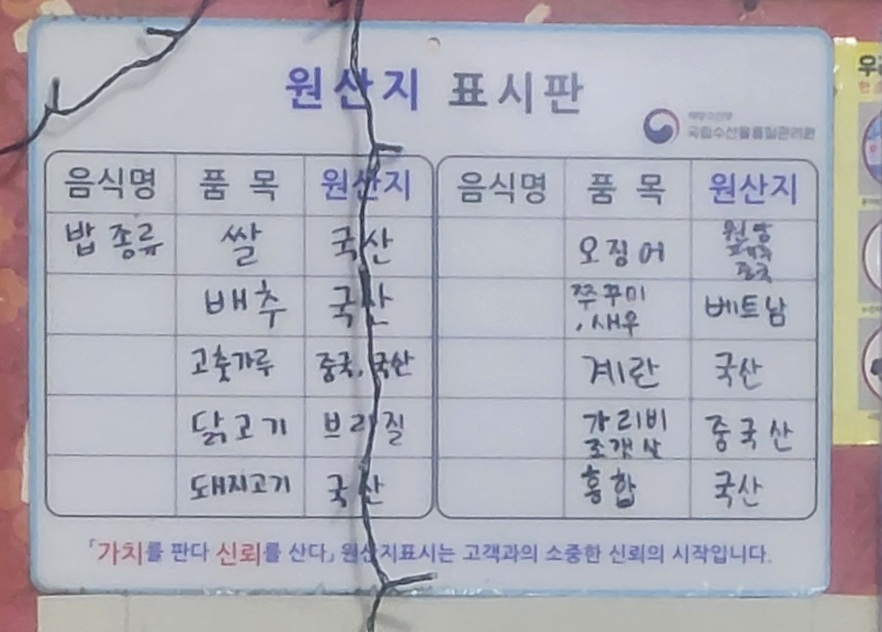 원산지 표시판
해양수산부
국립수산물품질관리원
음식명 품목 원산지 음식명 품목 원산지
밥 종류 쌀 국산 오징어 원양
중국
배추 국산 쭈꾸미 베트남
, 새우
고춧가루 중국, 국산 계란 국산
닭고기 브라질 가리비 중국산
조갯살
돼지고기 국산 홍합 국산
「가치를 판다 신뢰를 산다」 원산지표시는 고객과의 소중한 신뢰의 시작입니다.